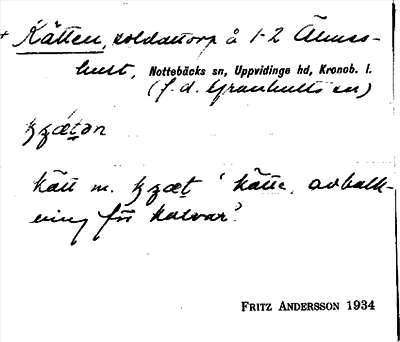 + Kätten, soldattorp å 1-2 Älmås-
hult, Nottebäcks sn, Uppvidinge hd, Kronob. l.
(f. d. Granhults sn)
kätt m. ' kätte, avbalk-
ning för kalvar'.
FRITZ ANDERSSON 1934